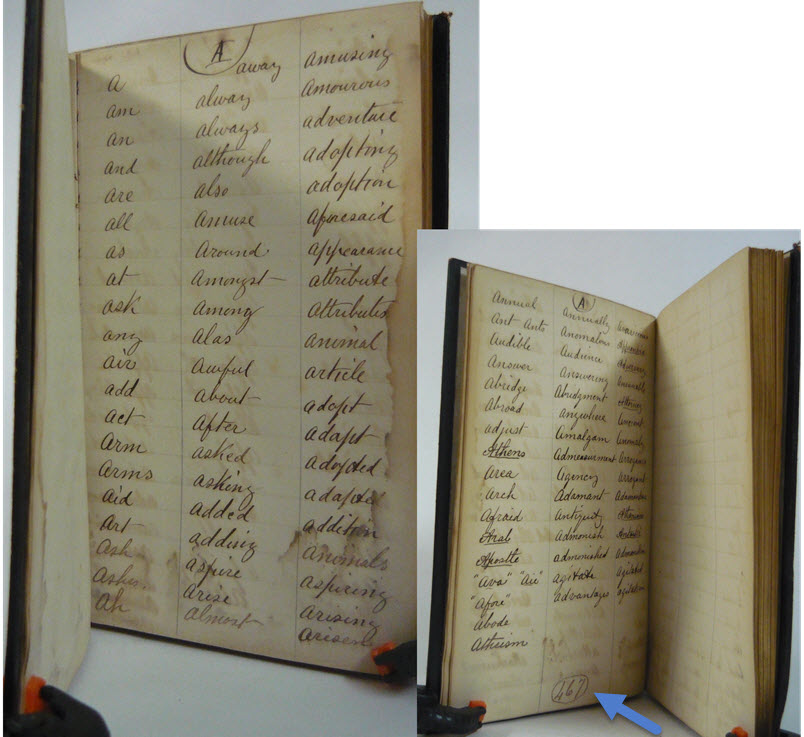 A
a
am
an
and
are
all
as
at
ask
any
air
add
act
Arm
Arms
Aid
Art
Ash
Ashes.
Ah
away
alway
always
although
also
amuse
around
amongst
among
alas
awful
about
after
asked
asking
added
adding
aspire
arise
almost
amusing
amourous
adventure
adopting
adoption
aforesaid
appearance
attribute
attributes
animal
article
adopt
adapt
adopted
adapted
addition
animals
aspiring
arising
arisen
A
Annual
Ant Ants
Audible
Answer
Abridge
Abroad
adjust
Athens
Area
Arch
Afraid
Arab
Apostle
"Ava" "Air"
"Afore"
Abode
Atheism
Annually
Anomalous
Audience
Answering
Abridgment
anywhere
Amalgam
Admeasurment
Agency
Adamant
Antiquity
Admonish
admonished
agitate
advantages
arrogance
arrogant
agitated
agitation
467